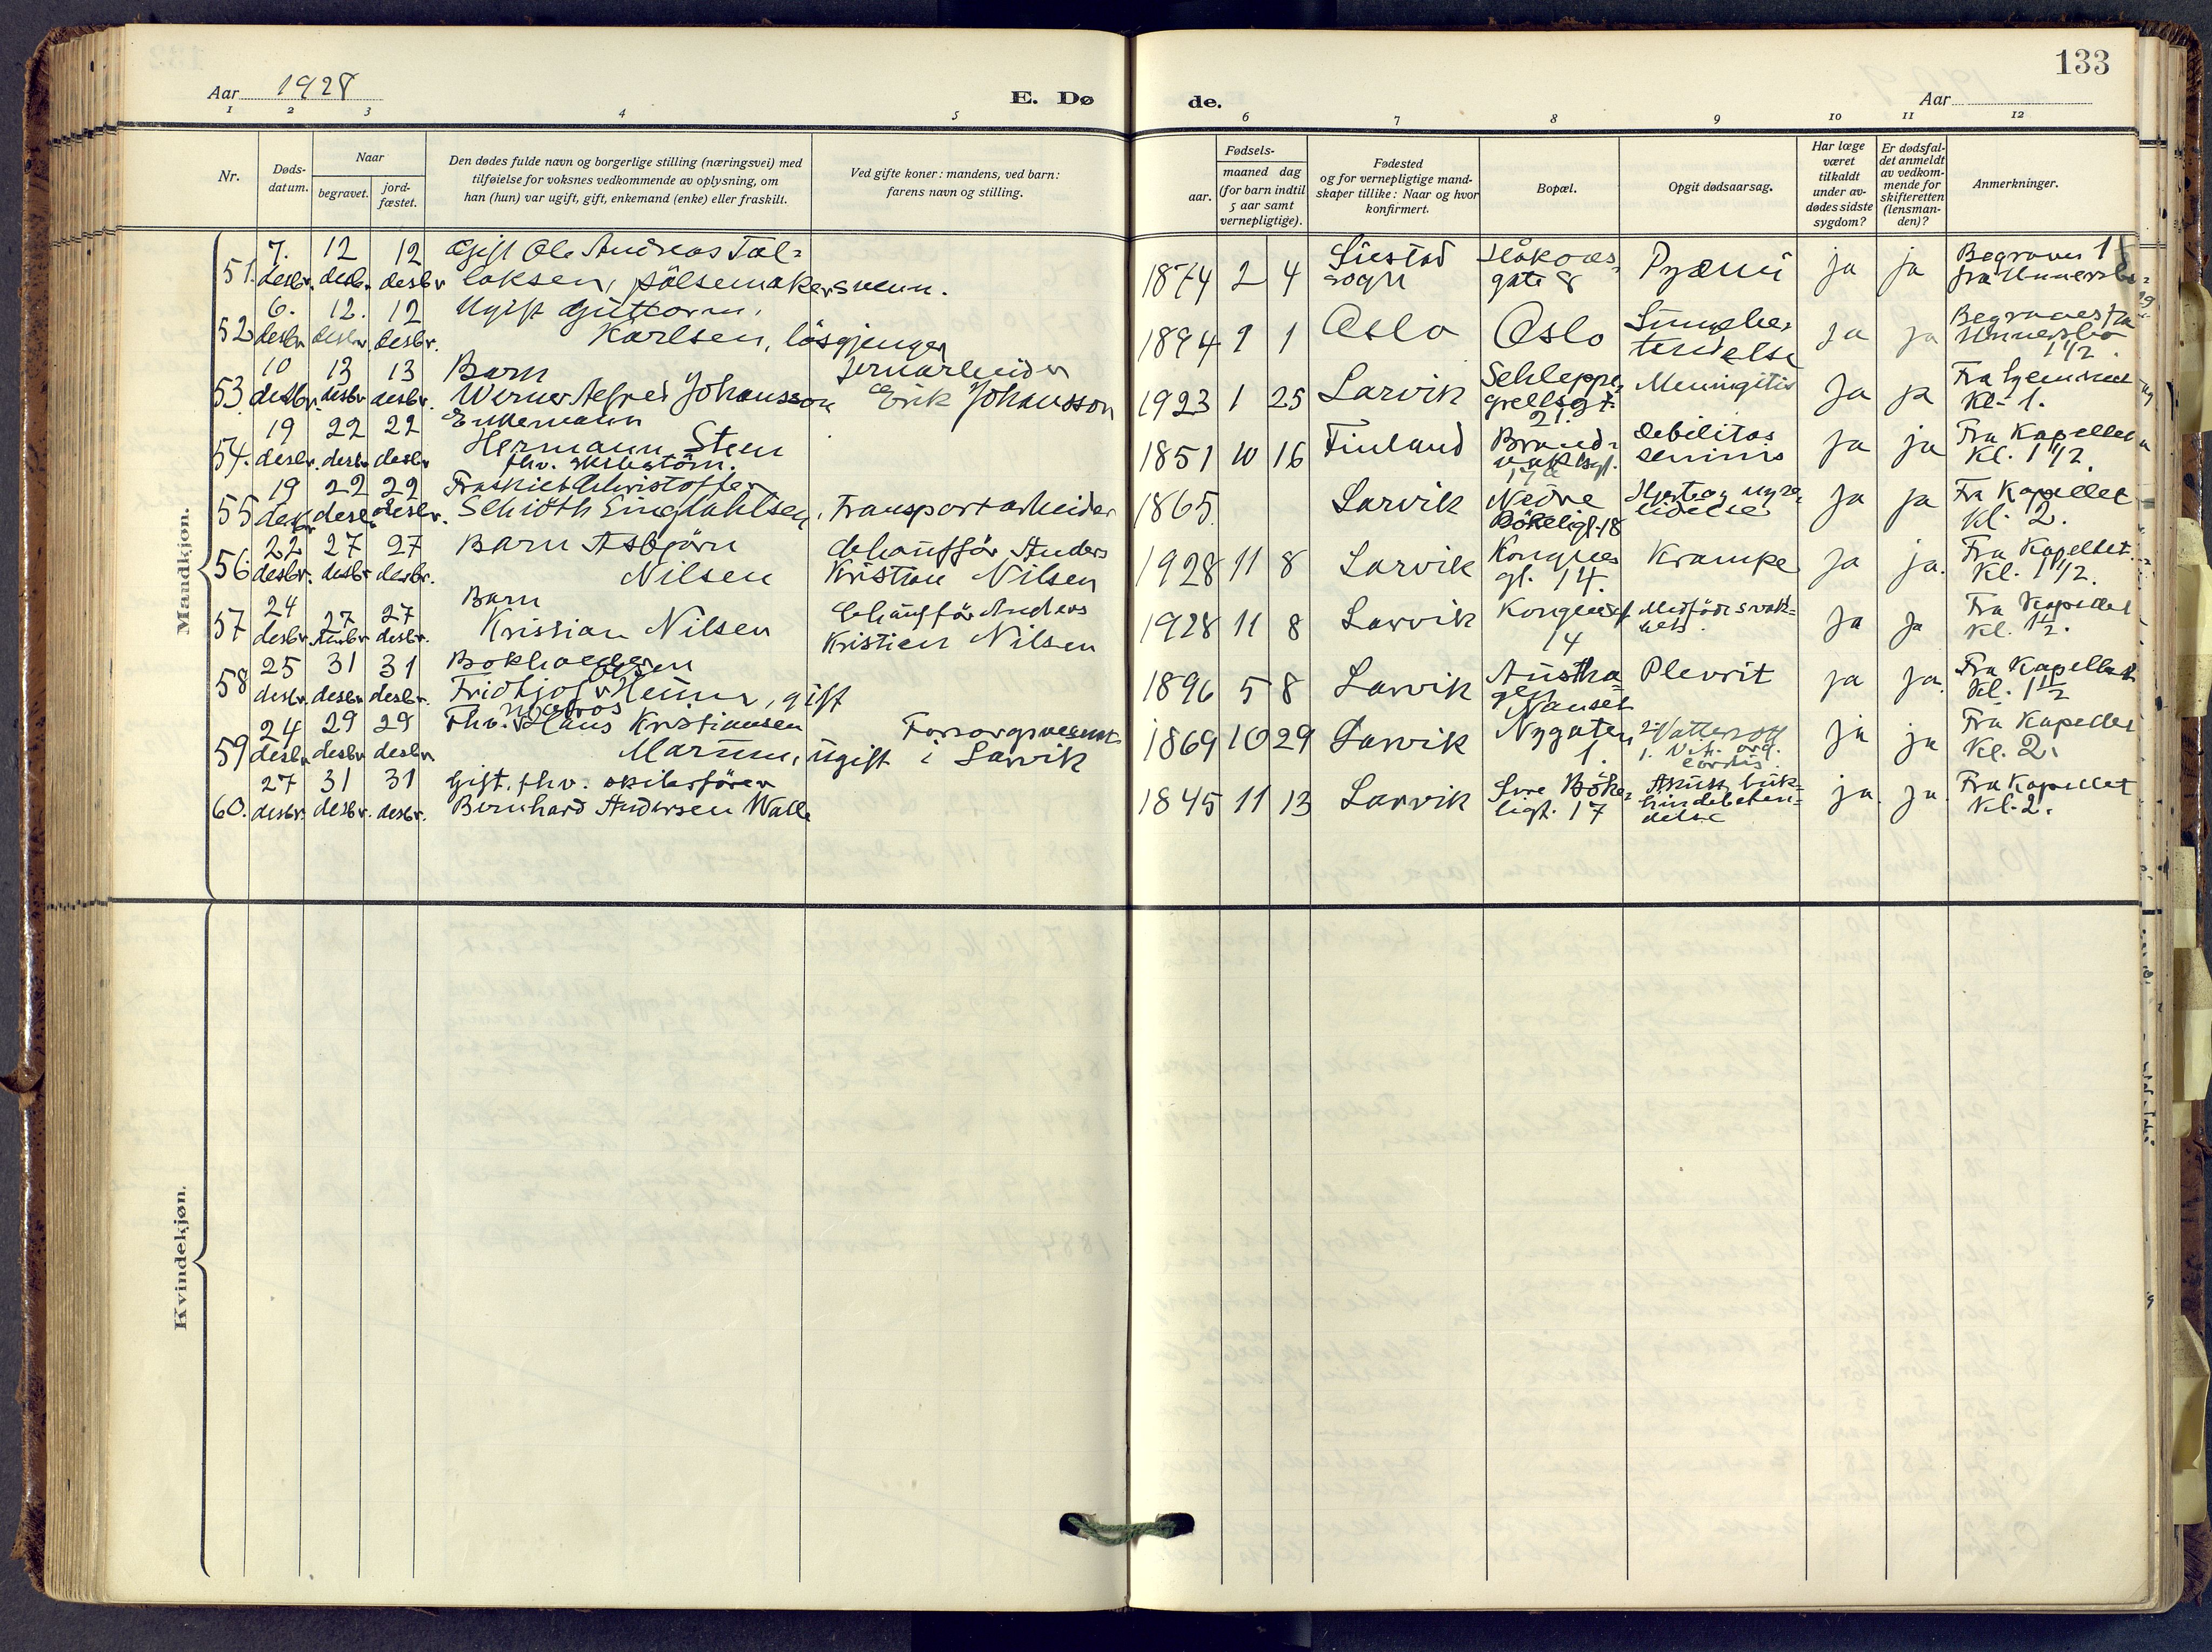 133
Aar 1928
E. Dø
de.
Aar
1 2 3 4 5 6 7 8 9 10 11 12
Nr.
Døds-
datum.
Naar
begravet.
jord-
fæstet.
Den dødes fulde navn og borgerlige stilling (næringsvei) med
tilføielse for voksnes vedkommende av oplysning, om
han (hun) var ugift, gift, enkemand (enke) eller fraskilt.
Ved gifte koner: mandens, ved barn:
farens navn og stilling.
Fødsels-
aar.
maaned dag
(for barn indtil
5 aar samt
vernepligtige).
Fødested
og for vernepligtige mand-
skaper tillike: Naar og hvor
konfirmert.
Bopæl.
Opgit dødsaarsag.
Har læge
været
tilkaldt
under av-
dødes sidste
sygdom?
Er dødsfal-
det anmeldt
av vedkom-
mende for
skifteretten
(lensman-
den)?
Anmerkninger.
Mandkjøn.
51. 7. desbr. 12 desbr. 12 desbr
Gift Ole Andreas Tal-
laksen, pölsemakersvenn.
1874 2 4
sogn
Håkons-
gate 8
Pyæmi
ja ja
52 6. desbr 12. desbr. 12 desbr.
Ugift Guttorm
Karlsen, lösgjenger
1894 1 Oslo Oslo
Lungebe-
tendelse
ja ja
1 1/2.
53. 10 desbr. 13 desbr 13 desbr.
Barn
Werner Alfred Johansson
Jernarbeider
Erik Johansson
1923 1 25 Larvik
Schleppe-
grellsgt.
21.
Meningitis
ja ja
Fra hjemmet
Kl. 1.
54. 19 desbr. 22 desbr. 22 desbr
Enkemann
Hermann Steen
fhv. skibstöm.
1851 10 16 Finland
debilitas
senines
ja ja
Fra Kapellet
Kl. 1 1/2.
55 19 desbr 22 desbr. 22 desbr.
Fraskilt Christoffer
Schiöth Engdahlsen, Transportarbeider
1865. Larvik
Nedre
Bökeligt. 18
Hjerte og nyre-
lidelse
ja ja
Fra Kapellet
Kl. 2.
56 22 desbr. 27 desbr 27 desbr.
Barn Asbjörn
Nilsen
Chaufför Anders
Kristian Nilsen
1928 11 8 Larvik
Konge
gt. 14.
Krampe
ja ja.
Fra Kapellet.
Kl. 1 1/2.
57 24 desbr. 27 desbr 27 desbr.
Barn
Kristian Nilsen
Chaufför Anders
Kristian Nilsen
1928 11 8 Larvik
Kongensgt
14
Medfödt svak-
het.
ja ja
Fra Kapellet
Kl. 1 1/2.
58 25 desbr. 31 desbr 31 desbr.
Bokholder
Olsen
Fridtjof Heum, gift
1896 5 8 Larvik
Nanset
Plevrit
ja ja.
Fra Kapellet
Kl. 1 1/2
59 24 desbr. 29 desbr 29 desbr
matros
Fhv. Hans Kristiansen
Marum, ugift
Forsorgsvesenet
i Larvik
1869 10 29 Larvik
Nygaten
1.
2. Vattersott
1. Vit. org.
cordis.
ja ja
Fra Kapellet
Kl. 2.
60. 27 desbr. 31 desbr. 31 desbr.
Gift, fhv. skibsförer
Bernhard Andersen Walle
1845 11 13 Larvik
Övre Böke-
ligt. 17
Akutt buk-
hindebeten-
delse
ja. ja.
Fra Kapellet
Kl. 2.
Kvindekjøn.